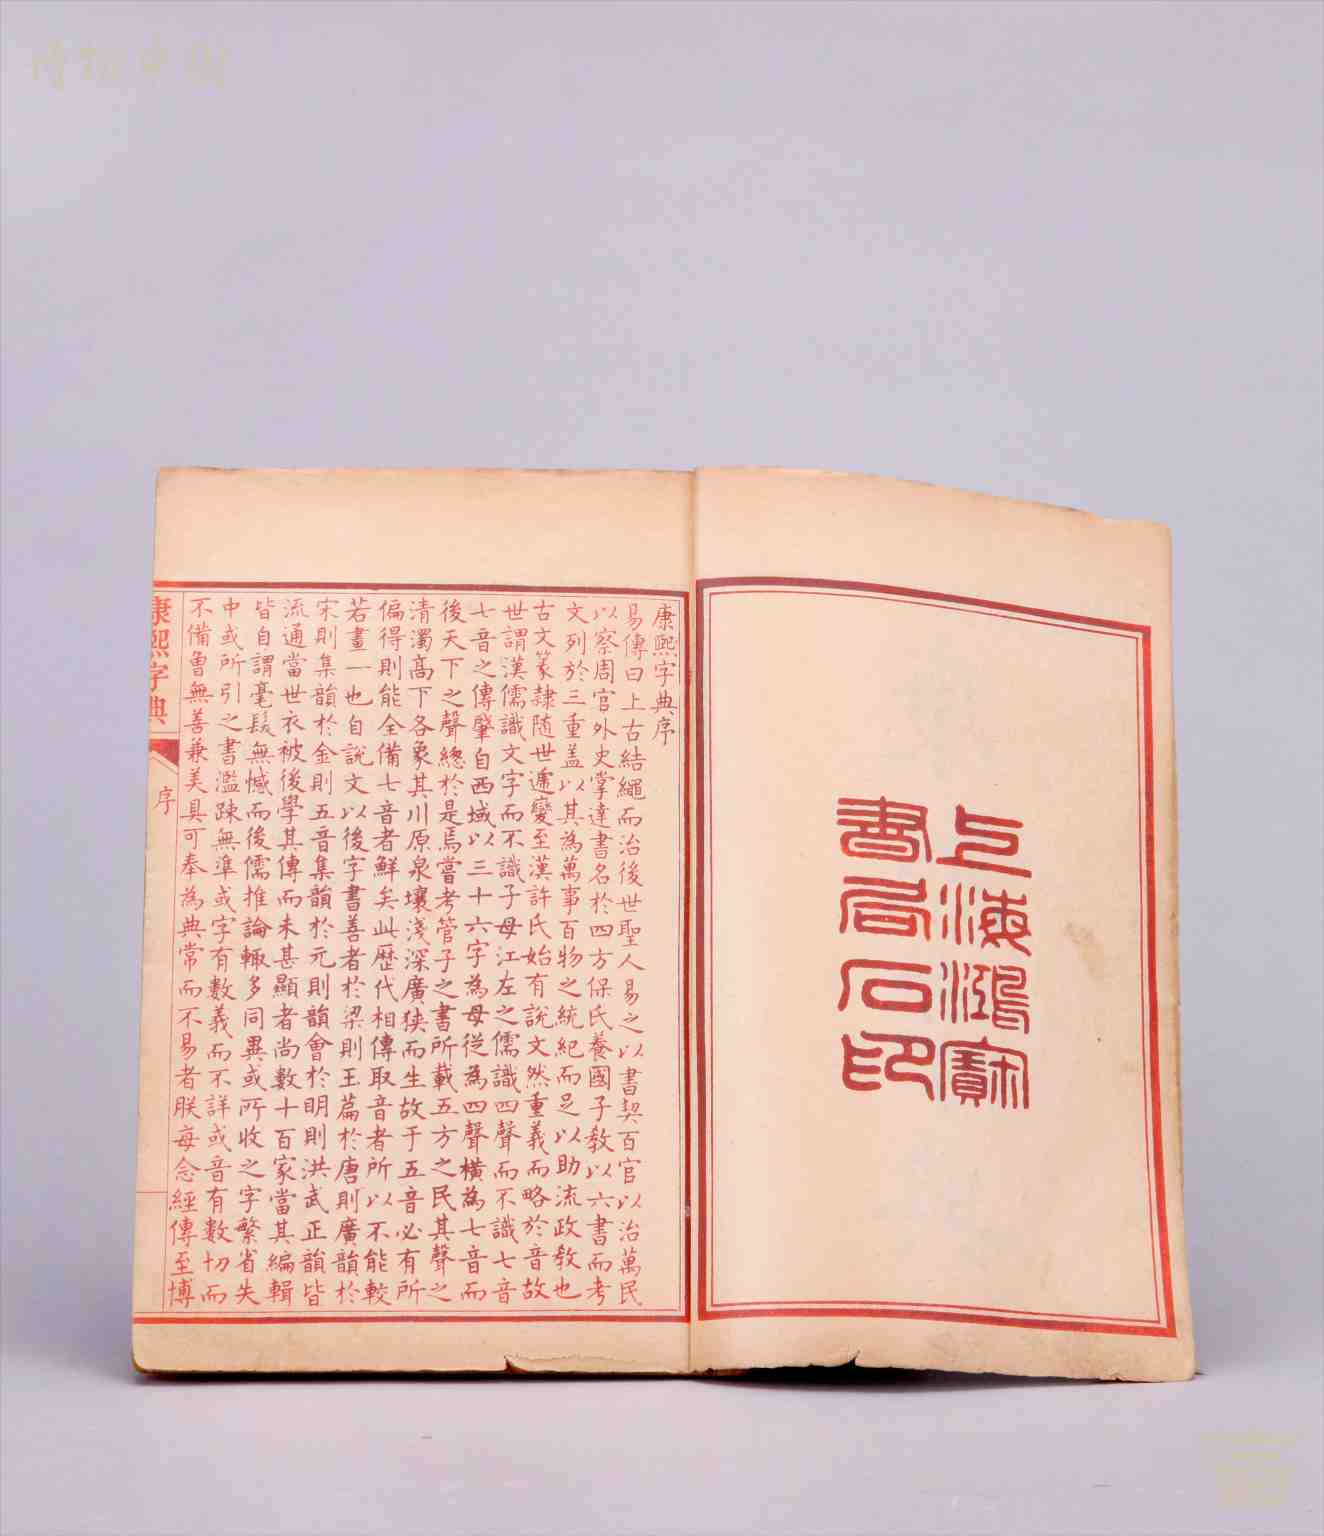 上海鴻寶
書局石印
康熙字典序
易傳曰上古結繩而治後世聖人易之以書契百官以治萬民
以察周官外史掌達書名於四方保氏養國子教以六書而考
文列於三重蓋以其為萬事百物之統紀而足以助流政教也
古文篆隸隨世遞變至漢許氏始有說文然重義而略於音故
世謂漢儒識文字而不識子母江左之儒識四聲而不識七音
七音之傳肇自西域以三十六字為母從為四聲橫為七音而
後天下之聲總於是焉嘗考管子之書所載五方之民其聲之
清濁高下各象其川原泉壤淺深廣狹而生故于五音必有所
偏得則能全備七音者鮮矣此歷代相傳取音者所以不能較
若畫一也自說文以後字書善者於梁則玉篇於唐則廣韻於
宋則集韻於金則五音集韻於元則韻會於明則洪武正韻皆
流通當世衣被後學其傳而未甚顯者尚數十百家當其編輯
皆自謂毫髮無憾而後儒推論輒多同異或所收之字繁省失
中或所引之書濫疎無準或字有數義而不詳或音有數切而
不備曾無善兼美具可奉為典常而不易者朕每念經傳至博
康熙字典
序